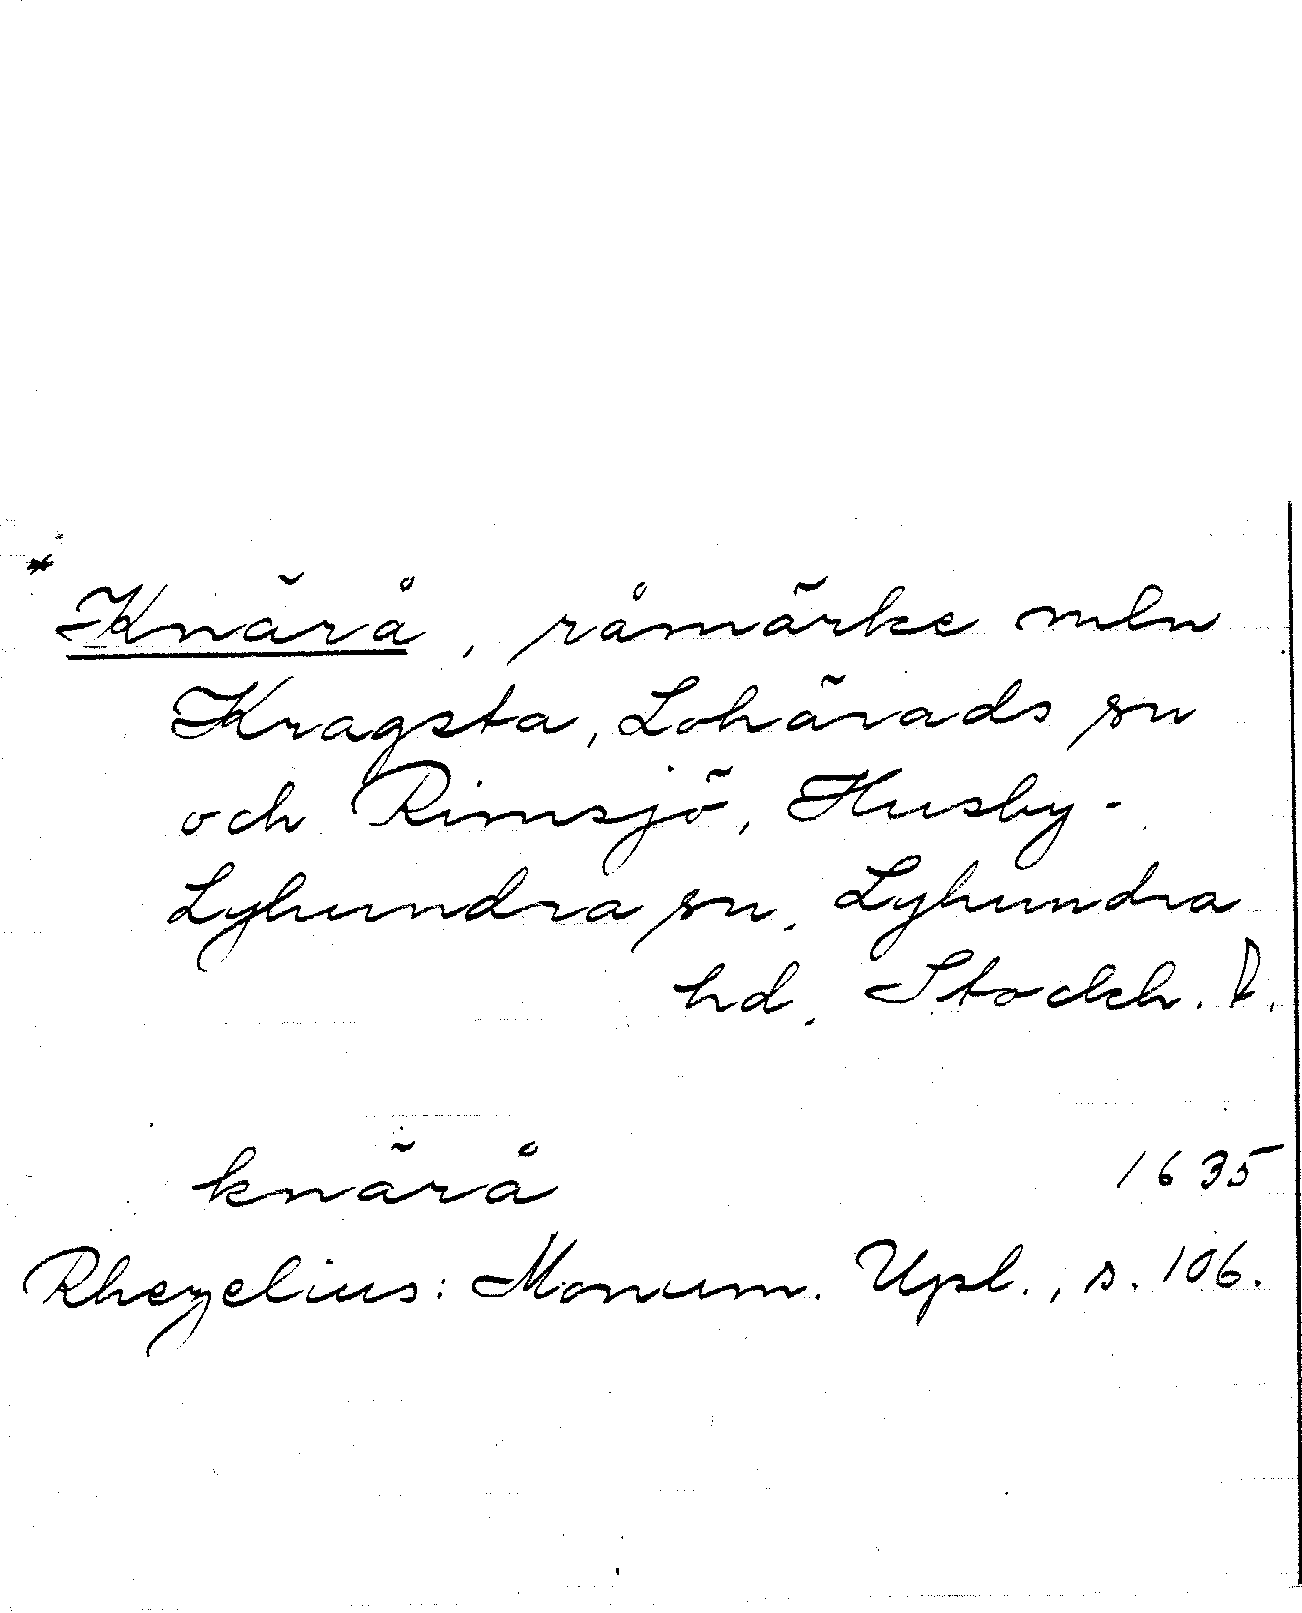 * Knärå, råmärke mln
Kragsta, Lohärads sn
och Rimsjö, Husby-
Lyhundra sn. Lyhundra
hd. Stockh. l.
knärå 1635
Rhezelius: Monum. Upl., s. 106.